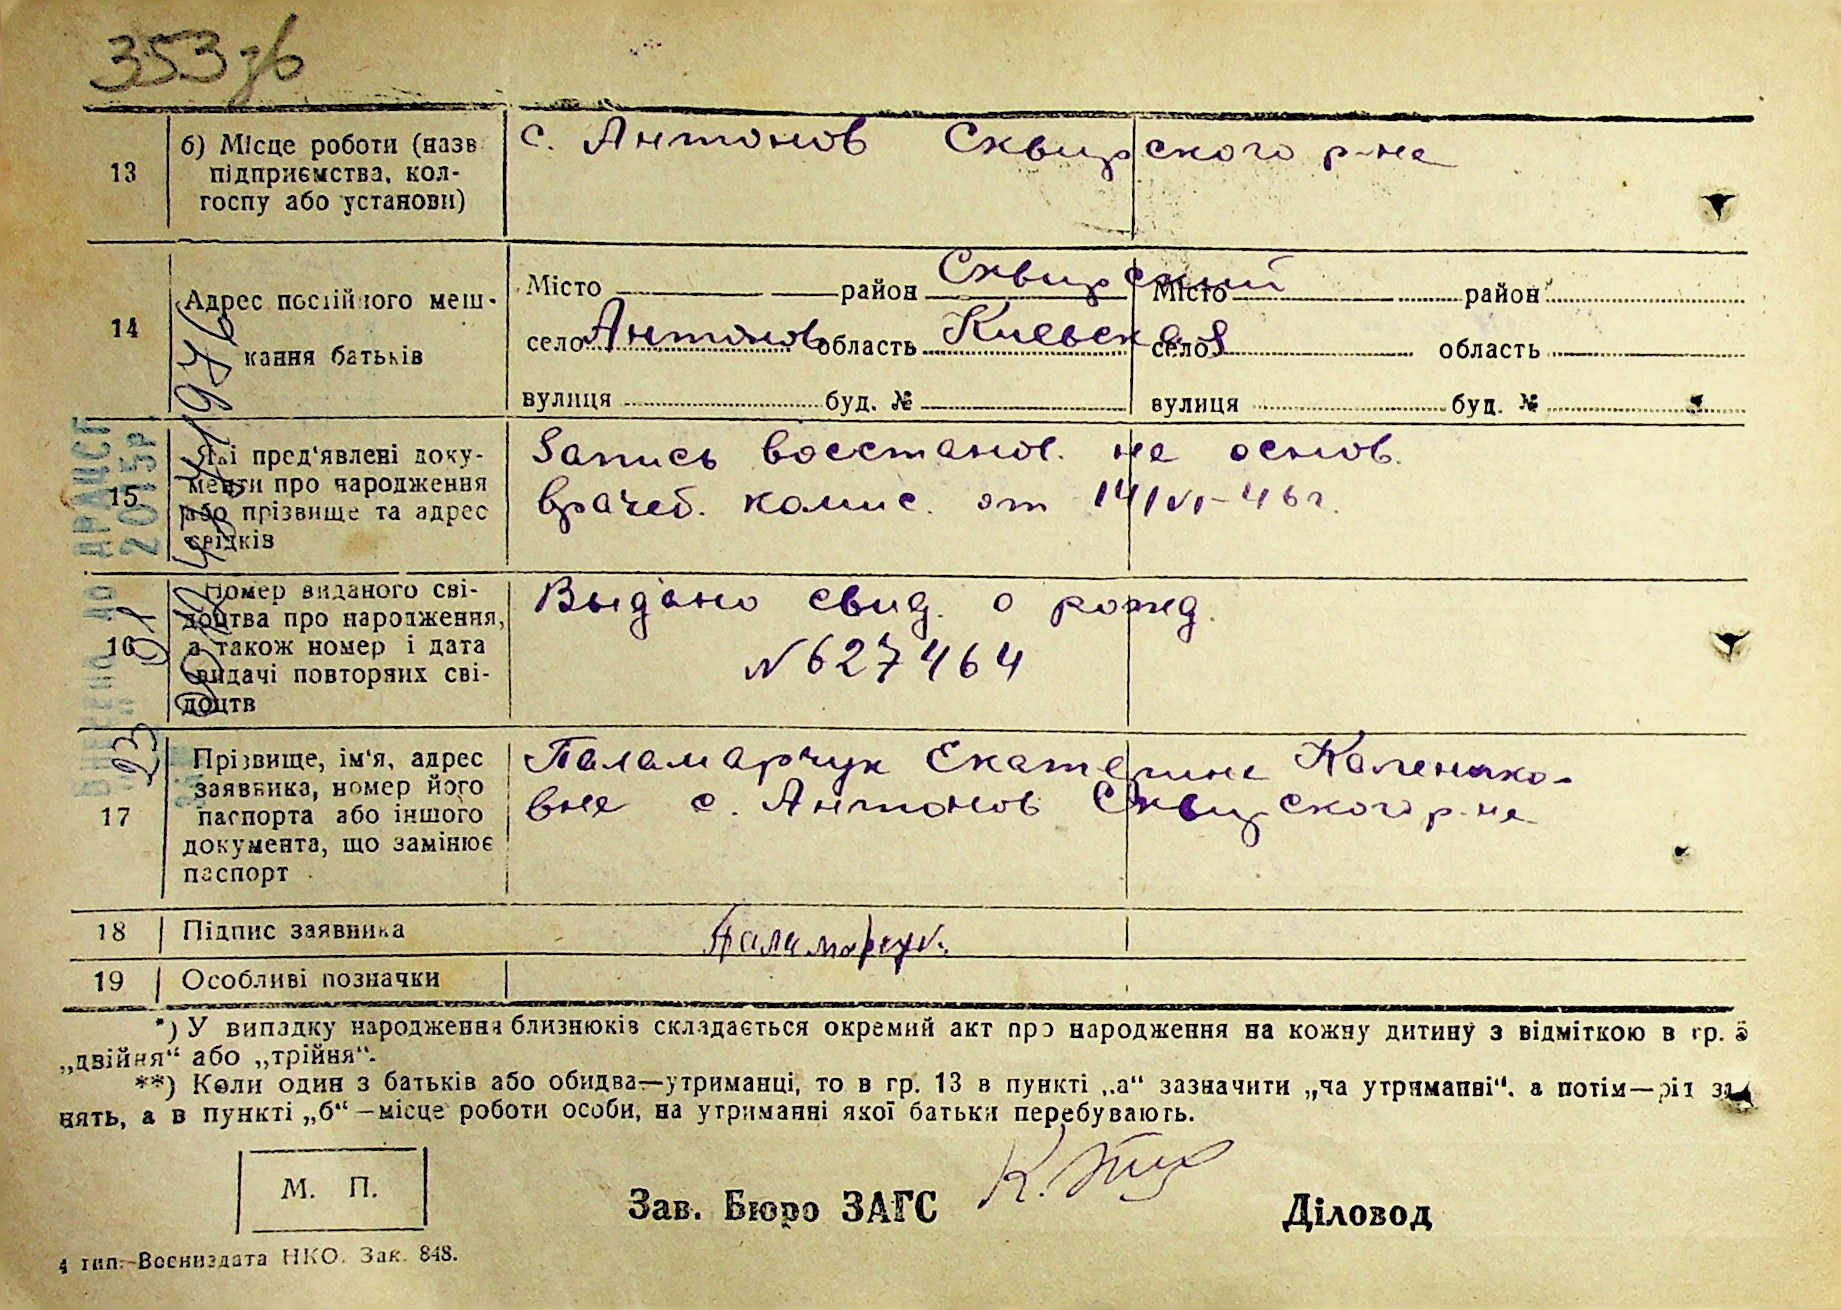 353 зв
13
б) Місце роботи (назв
підприємства, кол-
госпу або установи)
с. Антонов Сквирского р-на
14
Адрес постійного меш-
кання батьків
Місто район Сквирский
село Антонов область Киевская
вулиця буд. №
Місто район
село область
вулиця буд. №
15
Які пред'явлені доку-
менти про народження
або прізвище та адрес
свідків
Запись восстанов. на основ.
врачеб. комис. от 14/VI-46г.
16
Номер виданого сві-
доцтва про народження,
а також номер і дата
видачі повторних сві-
доцтв
Выдано свид. о рожд.
№ 627464
17
Прізвище, ім'я, адрес
заявника, номер його
паспорта або іншого
документа, що замінює
паспорт
Паламарчук Екатерина
вна с. Антонов Сквирского р-на
18
Підпис заявника
Паламарчук.
19
Особливі позначки
*) У випадку народження близнюків складається окремий акт про народження на кожну дитину з відміткою в гр.
„двійня“ або „трійня“.
**) Коли один з батьків або обидва—утриманці, то в гр. 13 в пункті „а“ зазначити „на утриманні“, а потім—рід за
нять, а в пункті „б“ —місце роботи особи, на утриманні якої батьки перебувають.
М. П.
Зав. Бюро ЗАГС
Діловод
4 тип. Воениздата НКО. Зак. 848.
ДРАЦСГ
2015р